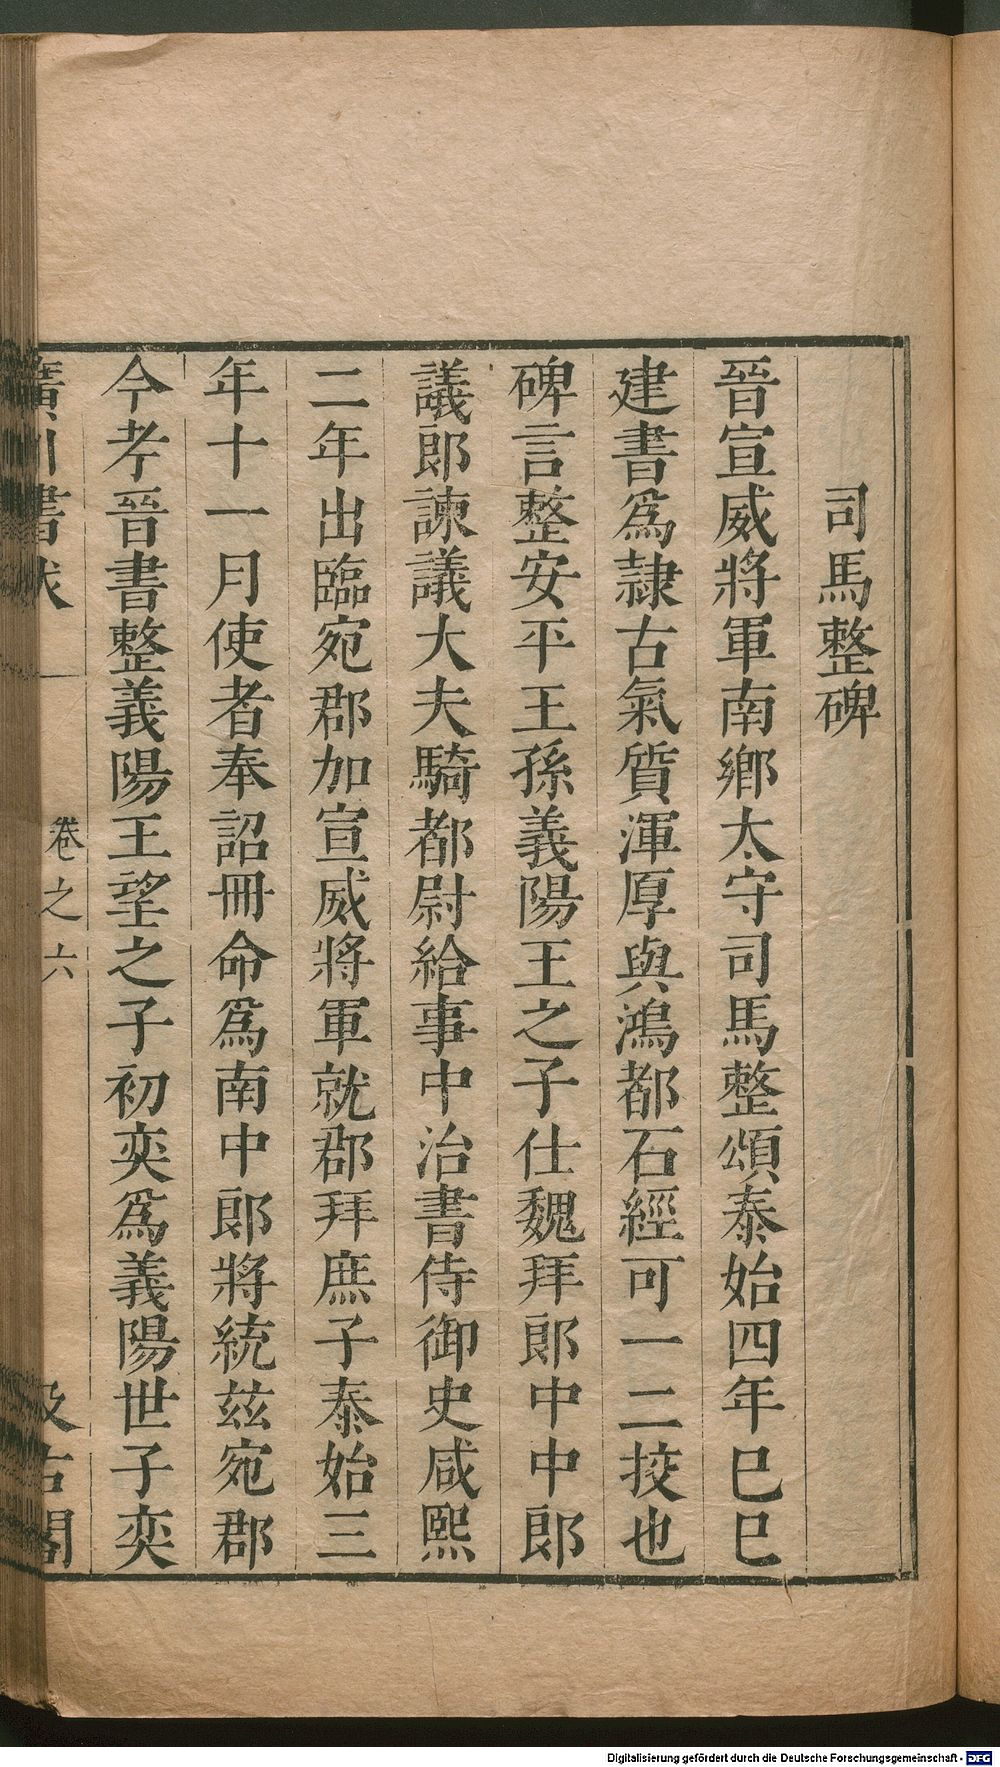 司馬整碑
晉宣威將軍南鄉太守司馬整頌泰始四年巳巳
建書爲隷古氣質渾厚與鴻都石經可一二挍也
碑言整安平王孫義陽王之子仕魏拜郎中中郎
議郎諫議大夫騎都尉給事中治書侍御史咸熙
二年出臨宛郡加宣威將軍就郡拜庶子泰始三
年十一月使者奉詔冊命爲南中郎將統兹宛郡
今考晉書整義陽王望之子初奕爲義陽世子奕
廣川書跋 卷之六 汲古閣
Digitalisierung gefördert durch die Deutsche Forschungsgemeinschaft - DFG